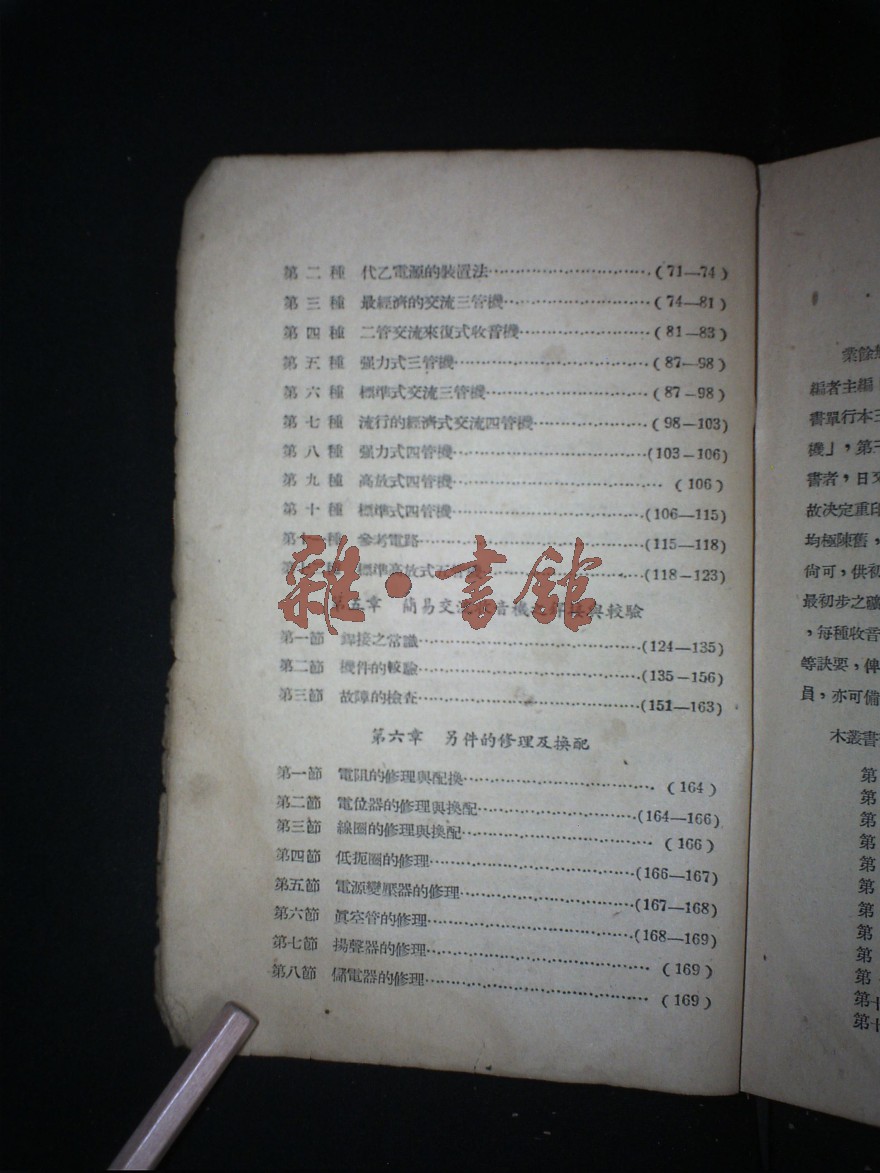 第二種 代乙電源的裝置法…………(71—74)
第三種 最經濟的交流三管機…………(74—81)
第四種 二管交流來復式收音機…………(81—83)
第五種 强力式三管機…………(87—98)
第六種 標準式交流三管機…………(87—98)
第七種 流行的經濟式交流四管機…………(98—103)
第八種 强力式四管機…………(103—106)
第九種 高放式四管機…………(106)
第十種 標準式四管機…………(106—115)
第十一種 參考電路…………(115—118)
第十二種 標準高放式五管機…………(118—123)
第五章 簡易交流收音機之銲接與較驗
第一節 銲接之常識…………(124—135)
第二節 機件的較驗…………(135—156)
第三節 故障的檢查…………(151—163)
第六章 另件的修理及換配
第一節 電阻的修理與配換…………(164)
第二節 電位器的修理與換配…………(164—166)
第三節 線圈的修理與換配…………(166)
第四節 低扼圈的修理…………(166—167)
第五節 電源變壓器的修理…………(167—168)
第六節 眞空管的修理…………(168—169)
第七節 揚聲器的修理…………(169)
第八節 儲電器的修理…………(169)
雜·書館
業餘
編者主編
書單行本三
機」，第
書者，日
故决定重印
均極陳舊，
尙可，供初
最初步之礦
，每種收音
等訣要，俾
員，亦可備
木叢書
第
第
第
第
第
第
第
第
第
第
第十
第十